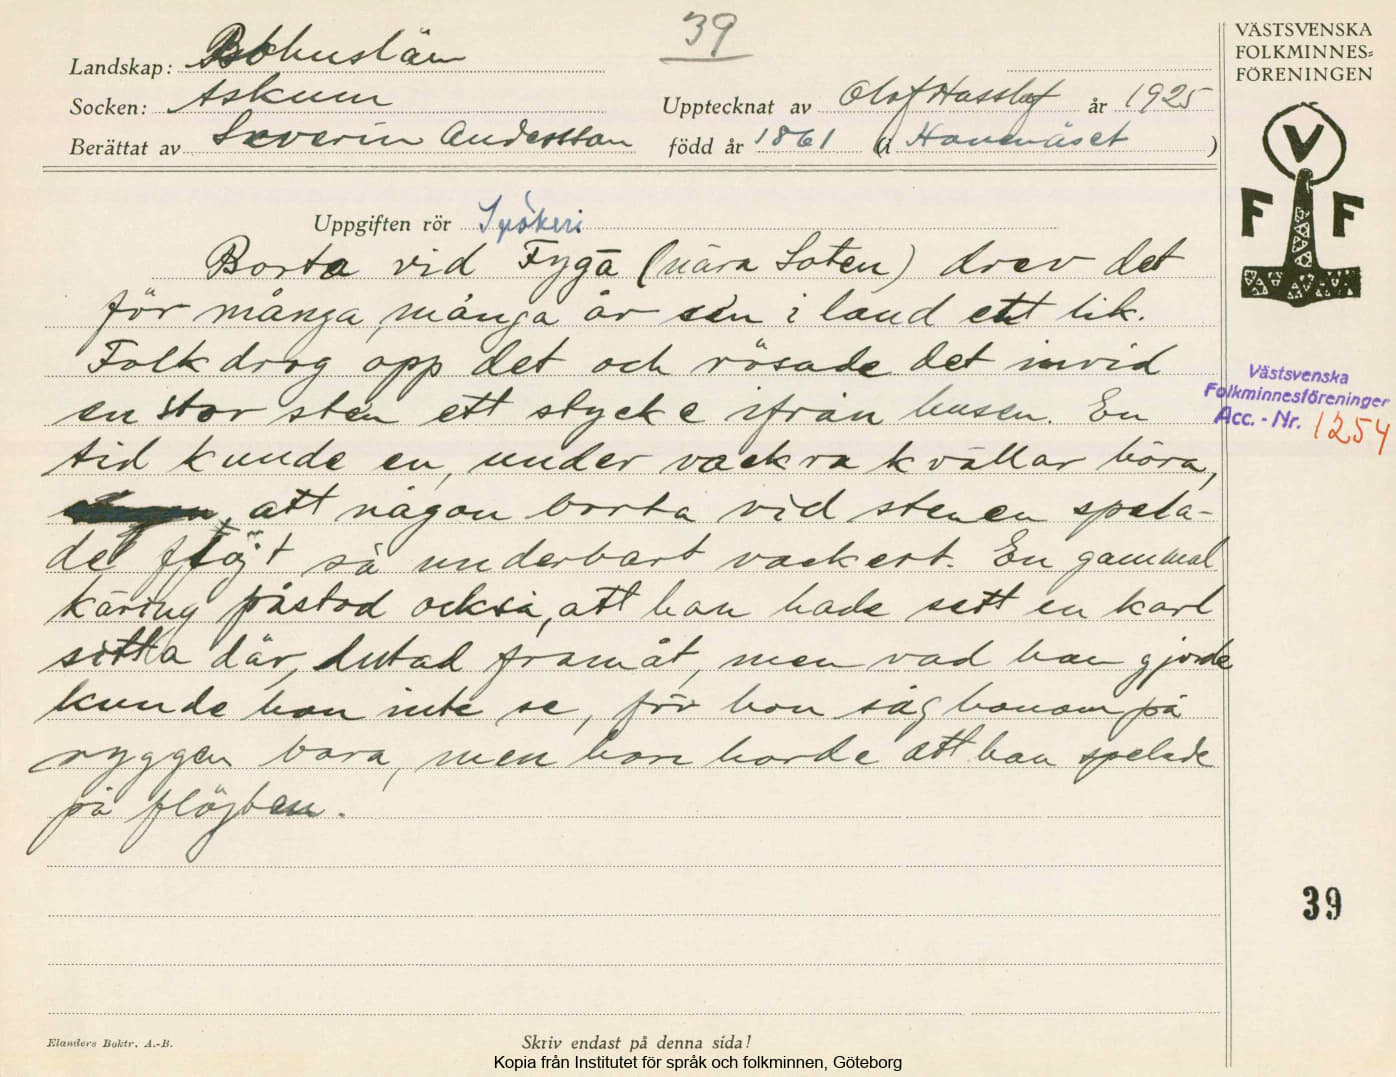 39
Landskap: Bohuslän
Socken: Askum
Berättat av Severin Andersson
Upptecknat av Olof Hasslöf år 1925
född år 1861 (i Hovenäset)
VÄSTSVENSKA
FOLKMINNES=
FÖRENINGEN
V
F F
Uppgiften rör Spökeri
Borta vid Fygå (nära Soten) drev det
för många, många år sen i land ett lik.
Folk drog opp det och rösade det invid
en stor sten ett stycke ifrån husen. En
tid kunde en, under vackra kvällar höra,
att någon borta vid stenen spela-
de flöjt så underbart vackert. En gammal
käring påstod också, att hon hade sett en karl
sitta där, lutad framåt, men vad han gjorde
kunde hon inte se, för hon såg honom på
ryggen bara, men hon horde att han spelade
på flöjten.
Västsvenska
Folkminnesföreninger
Acc. - Nr. 1254
39
Elanders Boktr. A.-B.
Skriv endast på denna sida!
Kopia från Institutet för språk och folkminnen, Göteborg